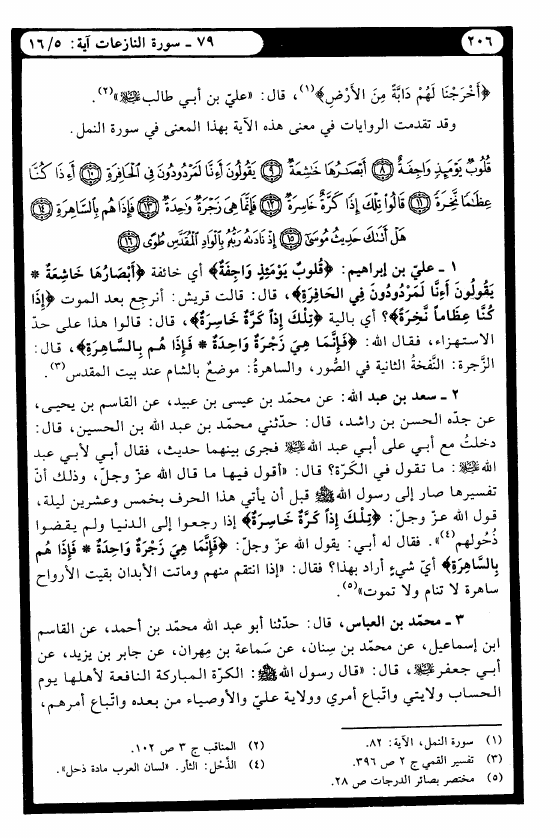 ٢٠٦
٧٩ ـ سورة النازعات آية: ١٦/٥
﴿أَخْرَجْنَا لَهُمْ دَابَّةً مِنَ الأَرْضِ﴾(١)، قال: «عليّ بن أبي طالب ﷺ»(٢).
وقد تقدمت الروايات في معنى هذه الآية بهذا المعنى في سورة النمل.
قُلُوبٌ يَوْمَئِذٍ وَاجِفَةٌ ﴿٨﴾ أَبْصَارُهَا خَاشِعَةٌ ﴿٩﴾ يَقُولُونَ أَءِنَّا لَمَرْدُودُونَ فِي الْحَافِرَةِ ﴿١٠﴾ أَءِذَا كُنَّا
عِظَامًا نَّخِرَةً ﴿١١﴾ قَالُوا تِلْكَ إِذًا كَرَّةٌ خَاسِرَةٌ ﴿١٢﴾ فَإِنَّمَا هِيَ زَجْرَةٌ وَاحِدَةٌ ﴿١٣﴾ فَإِذَا هُم بِالسَّاهِرَةِ ﴿١٤﴾
هَلْ أَتَاكَ حَدِيثُ مُوسَى ﴿١٥﴾ إِذْ نَادَاهُ رَبُّهُ بِالْوَادِ الْمُقَدَّسِ طُوًى ﴿١٦﴾
١ ـ عليّ بن إبراهيم: ﴿قُلُوبٌ يَوْمَئِذٍ وَاجِفَةٌ﴾ أي خائفة ﴿أَبْصَارُهَا خَاشِعَةٌ *
يَقُولُونَ أَءِنَّا لَمَرْدُودُونَ فِي الحَافِرَةِ﴾، قال: قالت قريش: أنرجع بعد الموت ﴿إِذَا
كُنَّا عِظَاماً نَّخِرَةً﴾؟ أي بالية ﴿تِلْكَ إِذاً كَرَّةٌ خَاسِرَةٌ﴾، قال: قالوا هذا على حدّ
الاستهزاء، فقال الله: ﴿فَإِنَّمَا هِيَ زَجْرَةٌ وَاحِدَةٌ * فَإِذَا هُم بِالسَّاهِرَةِ﴾، قال:
الزَّجرة: النَّفخةُ الثانية في الصُّور، والساهرةُ: موضعٌ بالشام عند بيت المقدس(٣).
٢ ـ سعد بن عبد الله: عن محمّد بن عيسى بن عبيد، عن القاسم بن يحيى،
عن جدّه الحسن بن راشد، قال: حدّثني محمّد بن عبد الله بن الحسين، قال:
دخلتُ مع أبي على أبي عبد الله ﷺ فجرى بينهما حديث، فقال أبي لأبي عبد
الله ﷺ: ما تقول في الكَرّة؟ قال: «أقول فيها ما قال الله عزّ وجلّ، وذلك أنّ
تفسيرها صار إلى رسول الله ﷺ قبل أن يأتي هذا الحرف بخمس وعشرين ليلة،
قول الله عزّ وجلّ: ﴿تِلْكَ إِذاً كَرَّةٌ خَاسِرَةٌ﴾ إذا رجعوا إلى الدنيا ولم يقضوا
ذُحُولهم(٤)». فقال له أبي: يقول الله عزّ وجلّ: ﴿فَإِنَّمَا هِيَ زَجْرَةٌ وَاحِدَةٌ * فَإِذَا هُم
بِالسَّاهِرَةِ﴾ أيّ شيءٍ أراد بهذا؟ فقال: «إذا انتقم منهم وماتت الأبدان بقيت الأرواح
ساهرة لا تنام ولا تموت»(٥).
٣ ـ محمّد بن العباس، قال: حدّثنا أبو عبد الله محمّد بن أحمد، عن القاسم
ابن إسماعيل، عن محمّد بن سِنان، عن سَماعة بن مِهران، عن جابر بن يزيد، عن
أبي جعفر ﷺ، قال: «قال رسول الله ﷺ: الكرّة المباركة النافعة لأهلها يوم
الحساب ولايتي واتّباع أمري وولاية عليّ والأوصياء من بعده واتّباع أمرهم،
(١) سورة النمل، الآية: ٨٢.
(٢) المناقب ج ٣ ص ١٠٢.
(٣) تفسير القمي ج ٢ ص ٣٩٦.
(٤) الذَّحْل: الثأر. «لسان العرب مادة ذحل».
(٥) مختصر بصائر الدرجات ص ٢٨.